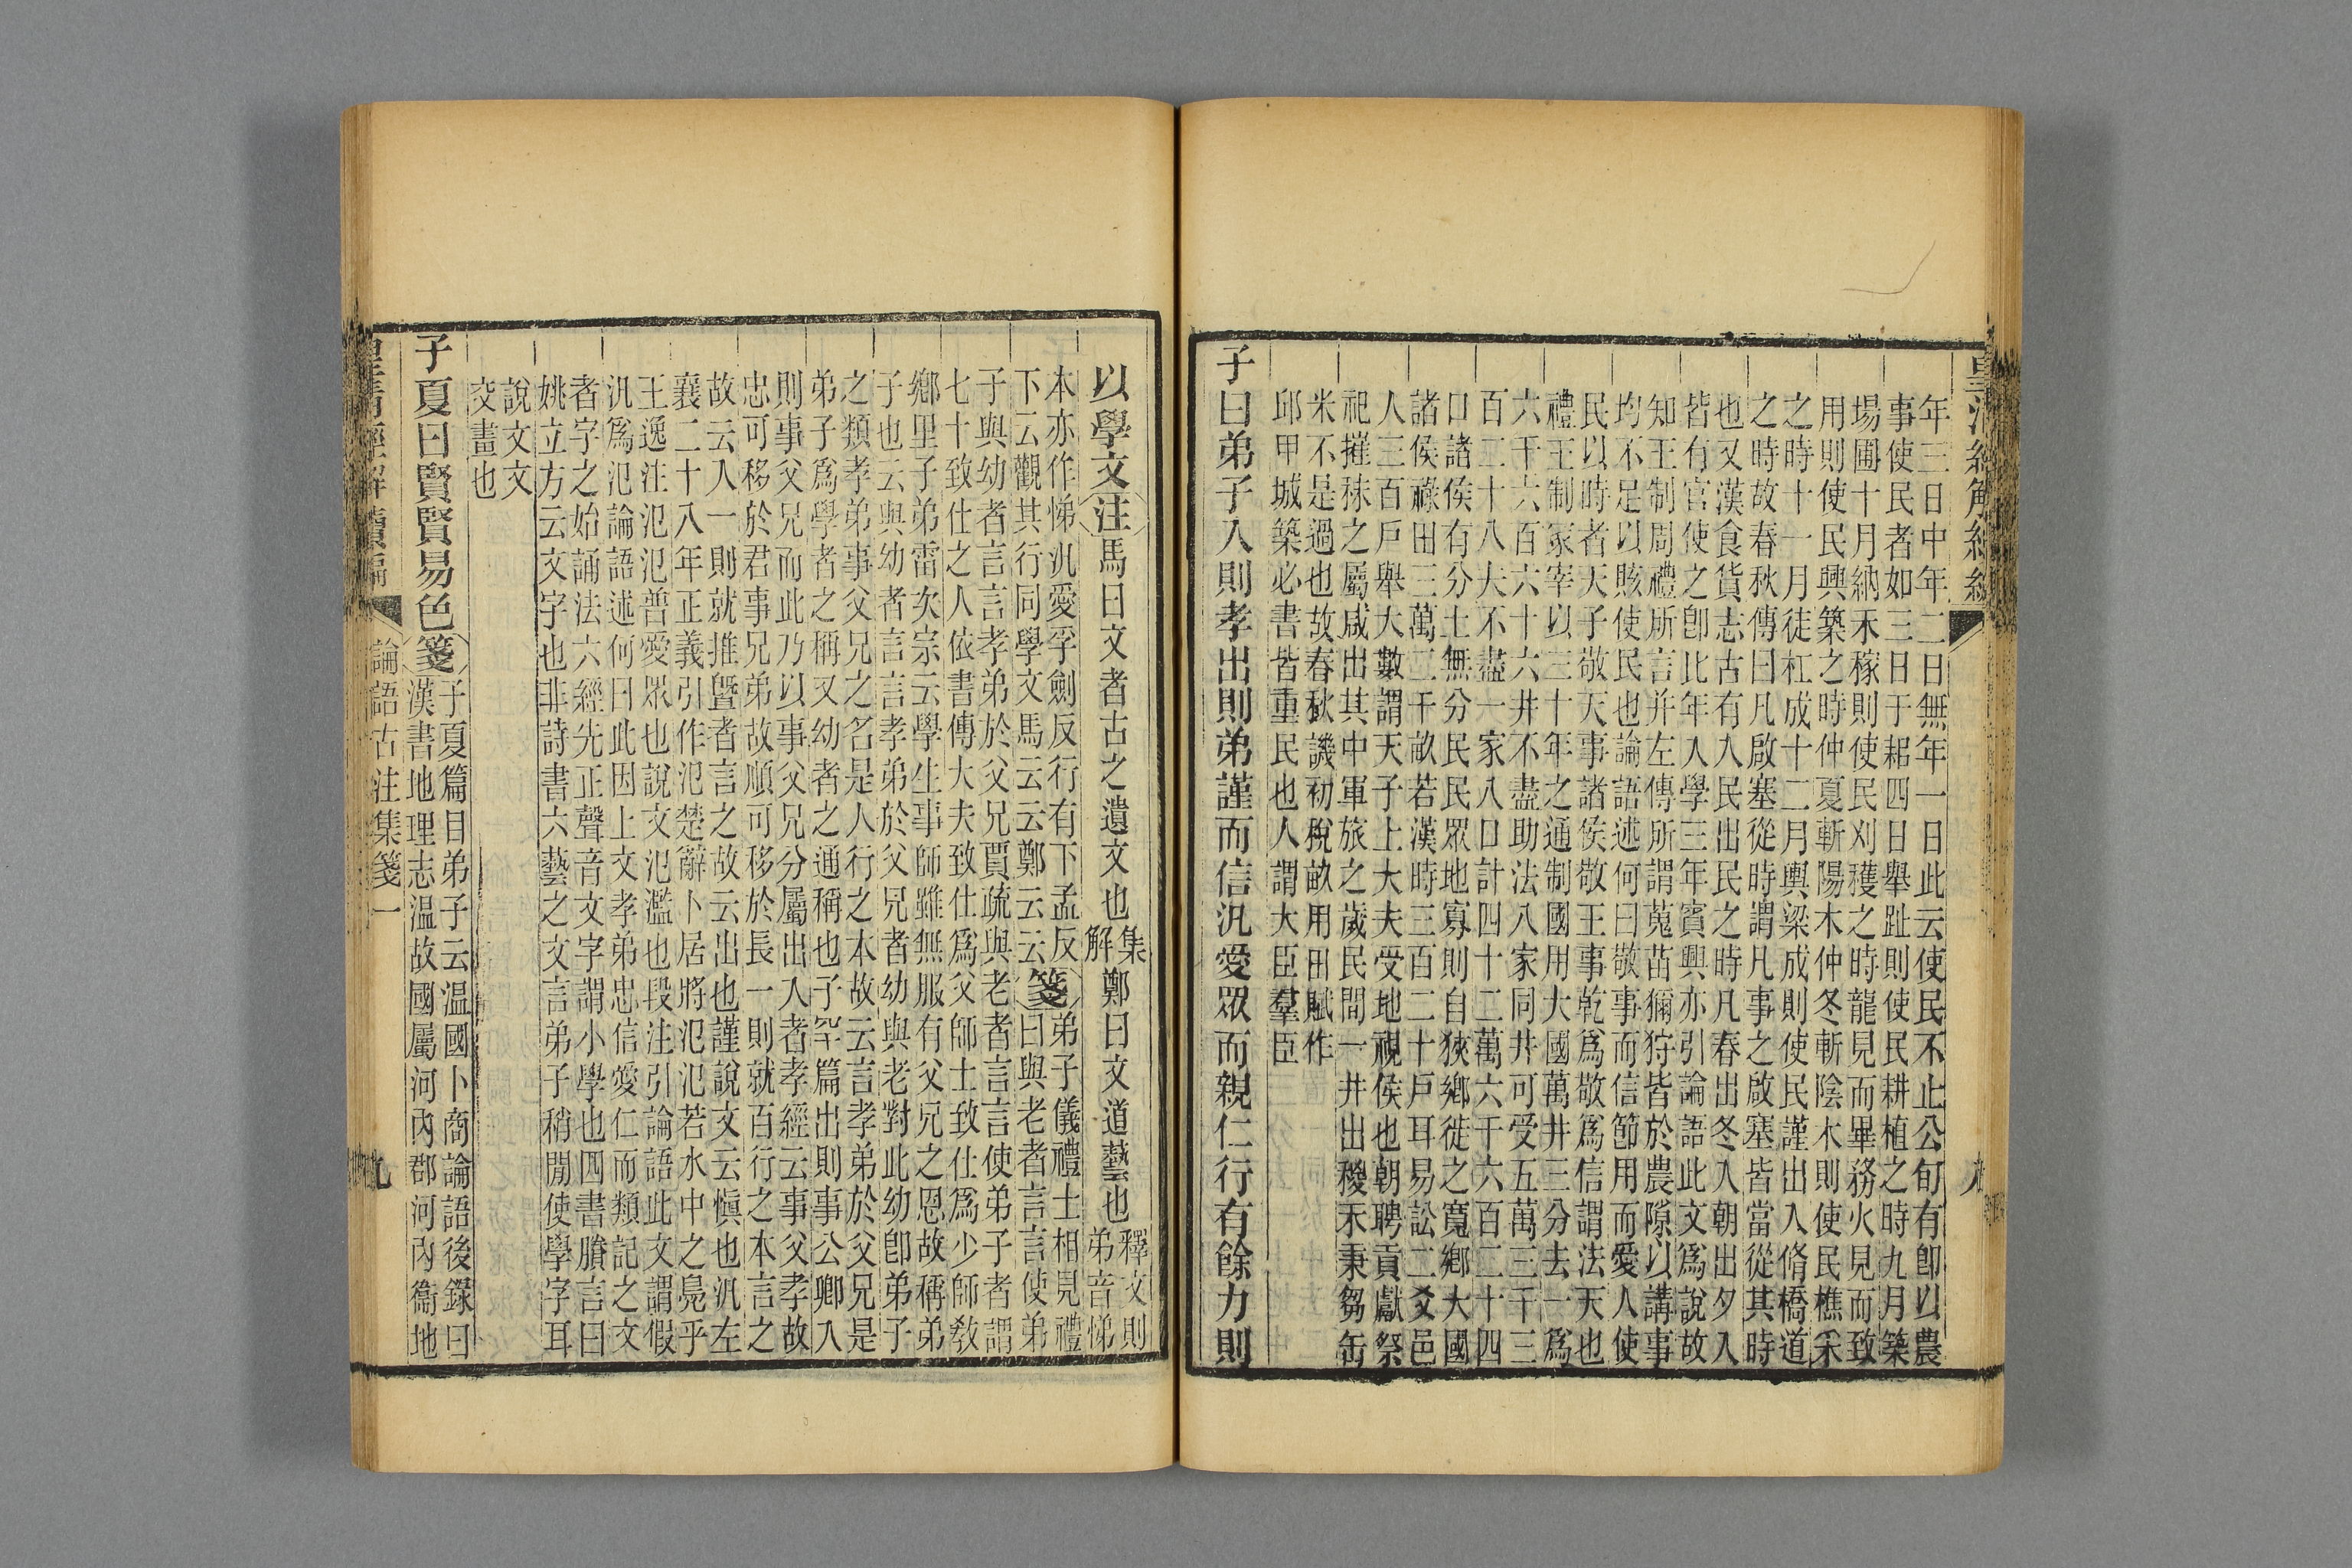 年三日中年二日無年一日此云使民不止公旬有卽以農
事使民者如三日于耜四日舉趾則使民耕植之時九月築
場圃十月納禾稼則使民刈穫之時龍見而畢務火見而致
用則使民興築之時仲夏斬陽木仲冬斬陰木則使民樵采
之時十一月徒杠成十二月輿梁成則使民謹出入脩橋道
之時故春秋傳曰凡啟塞從時謂凡事之啟塞皆當從其時
也又漢食貨志古有入民出民之時凡春出冬入朝出夕入
皆有官使之卽此年人學三年賓興亦引論語此文爲說故
知王制周禮所言并左傳所謂蒐苗獮狩皆於農隙以講事
均不足以賅使民也論語述何曰敬事而信節用而愛人使
民以時者天子敬天事諸侯敬王事乾爲敬爲信謂法天也
禮王制冢宰以三十年之通制國用大國萬井三分去一爲
六千六百六十六井不盡助法八家同井可受五萬三千三
百二十八夫不盡一家八口計四十二萬六千六百二十四
口諸侯有分土無分民民眾地寡則自狹鄉徙之寬鄉大國
諸侯祿田三萬二千畝若漢時三百二十戶耳易訟二爻邑
人三百戶舉大數謂天子上大夫受地視侯也朝聘貢獻祭
祀摧秣之屬咸出其中軍旅之歲民間一井出稯禾秉芻缶
米不是過也故春秋譏初稅畝用田賦作
邱甲城築必書皆重民也人謂大臣羣臣
子曰弟子入則孝出則弟謹而信汎愛眾而親仁行有餘力則
以學文注馬曰文者古之遺文也集解鄭曰文道藝也釋文則弟音悌
本亦作悌汎愛孚劍反行有下孟反
下云觀其行同學文馬云云鄭云云箋弟子儀禮士相見禮
曰與老者言言使弟
子與幼者言言孝弟於父兄賈疏與老者言言使弟子者謂
七十致仕之人依書傳大夫致仕爲父師士致仕爲少師敎
鄉里子弟雷次宗云學生事師雖無服有父兄之恩故稱弟
子也云與幼者言言孝弟於父兄者幼與老對此幼卽弟子
之類孝弟事父兄之名是人行之本故云言孝弟於父兄是
弟子爲學者之稱又幼者之通稱也子罕篇出則事公卿入
則事父兄而此乃以事父兄分屬出入者孝經云事父孝故
忠可移於君事兄弟故順可移於長一則就百行之本言之
故云入一則就推曁者言之故云出也謹說文云愼也汎左
襄二十八年正義引作氾楚辭卜居將氾氾若水中之鳧乎
王逸注氾氾普愛眾也說文氾濫也段注引論語此文謂假
汎爲氾論語述何曰此因上文孝弟忠信愛仁而類記之文
者字之始誦法六經先正聲音文字謂小學也四書賸言曰
姚立方云文字也非詩書六藝之文言弟子稍閒使學字耳
說文文
交畫也
子夏曰賢賢易色箋子夏篇目弟子云温國卜商論語後錄曰
漢書地理志温故國屬河內郡河內衞地
論語古注集箋一